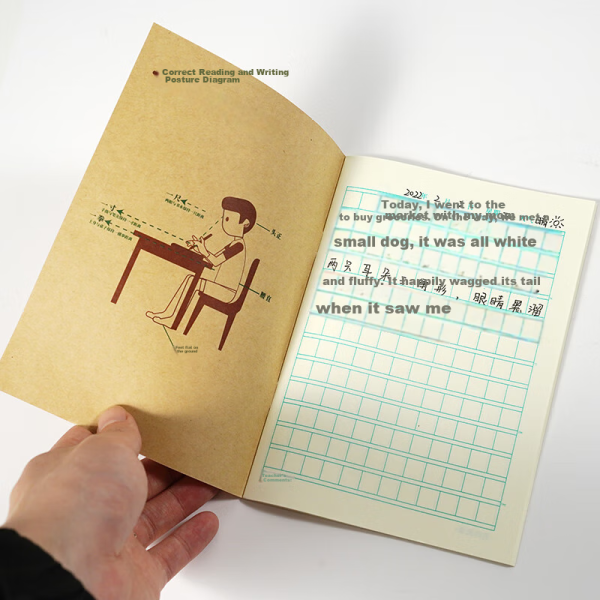 Correct Reading and Writing
Posture Diagram
一尺
一寸
一拳
头正
腰直
Feet flat on
the ground
2022 2 晴
Today, I went to the
market with my mom
to buy groceries. On the way, we met
small dog, it was all white
两只耳朵 形，眼睛黑溜
and fluffy. It happily wagged its tail
when it saw me
Comments: